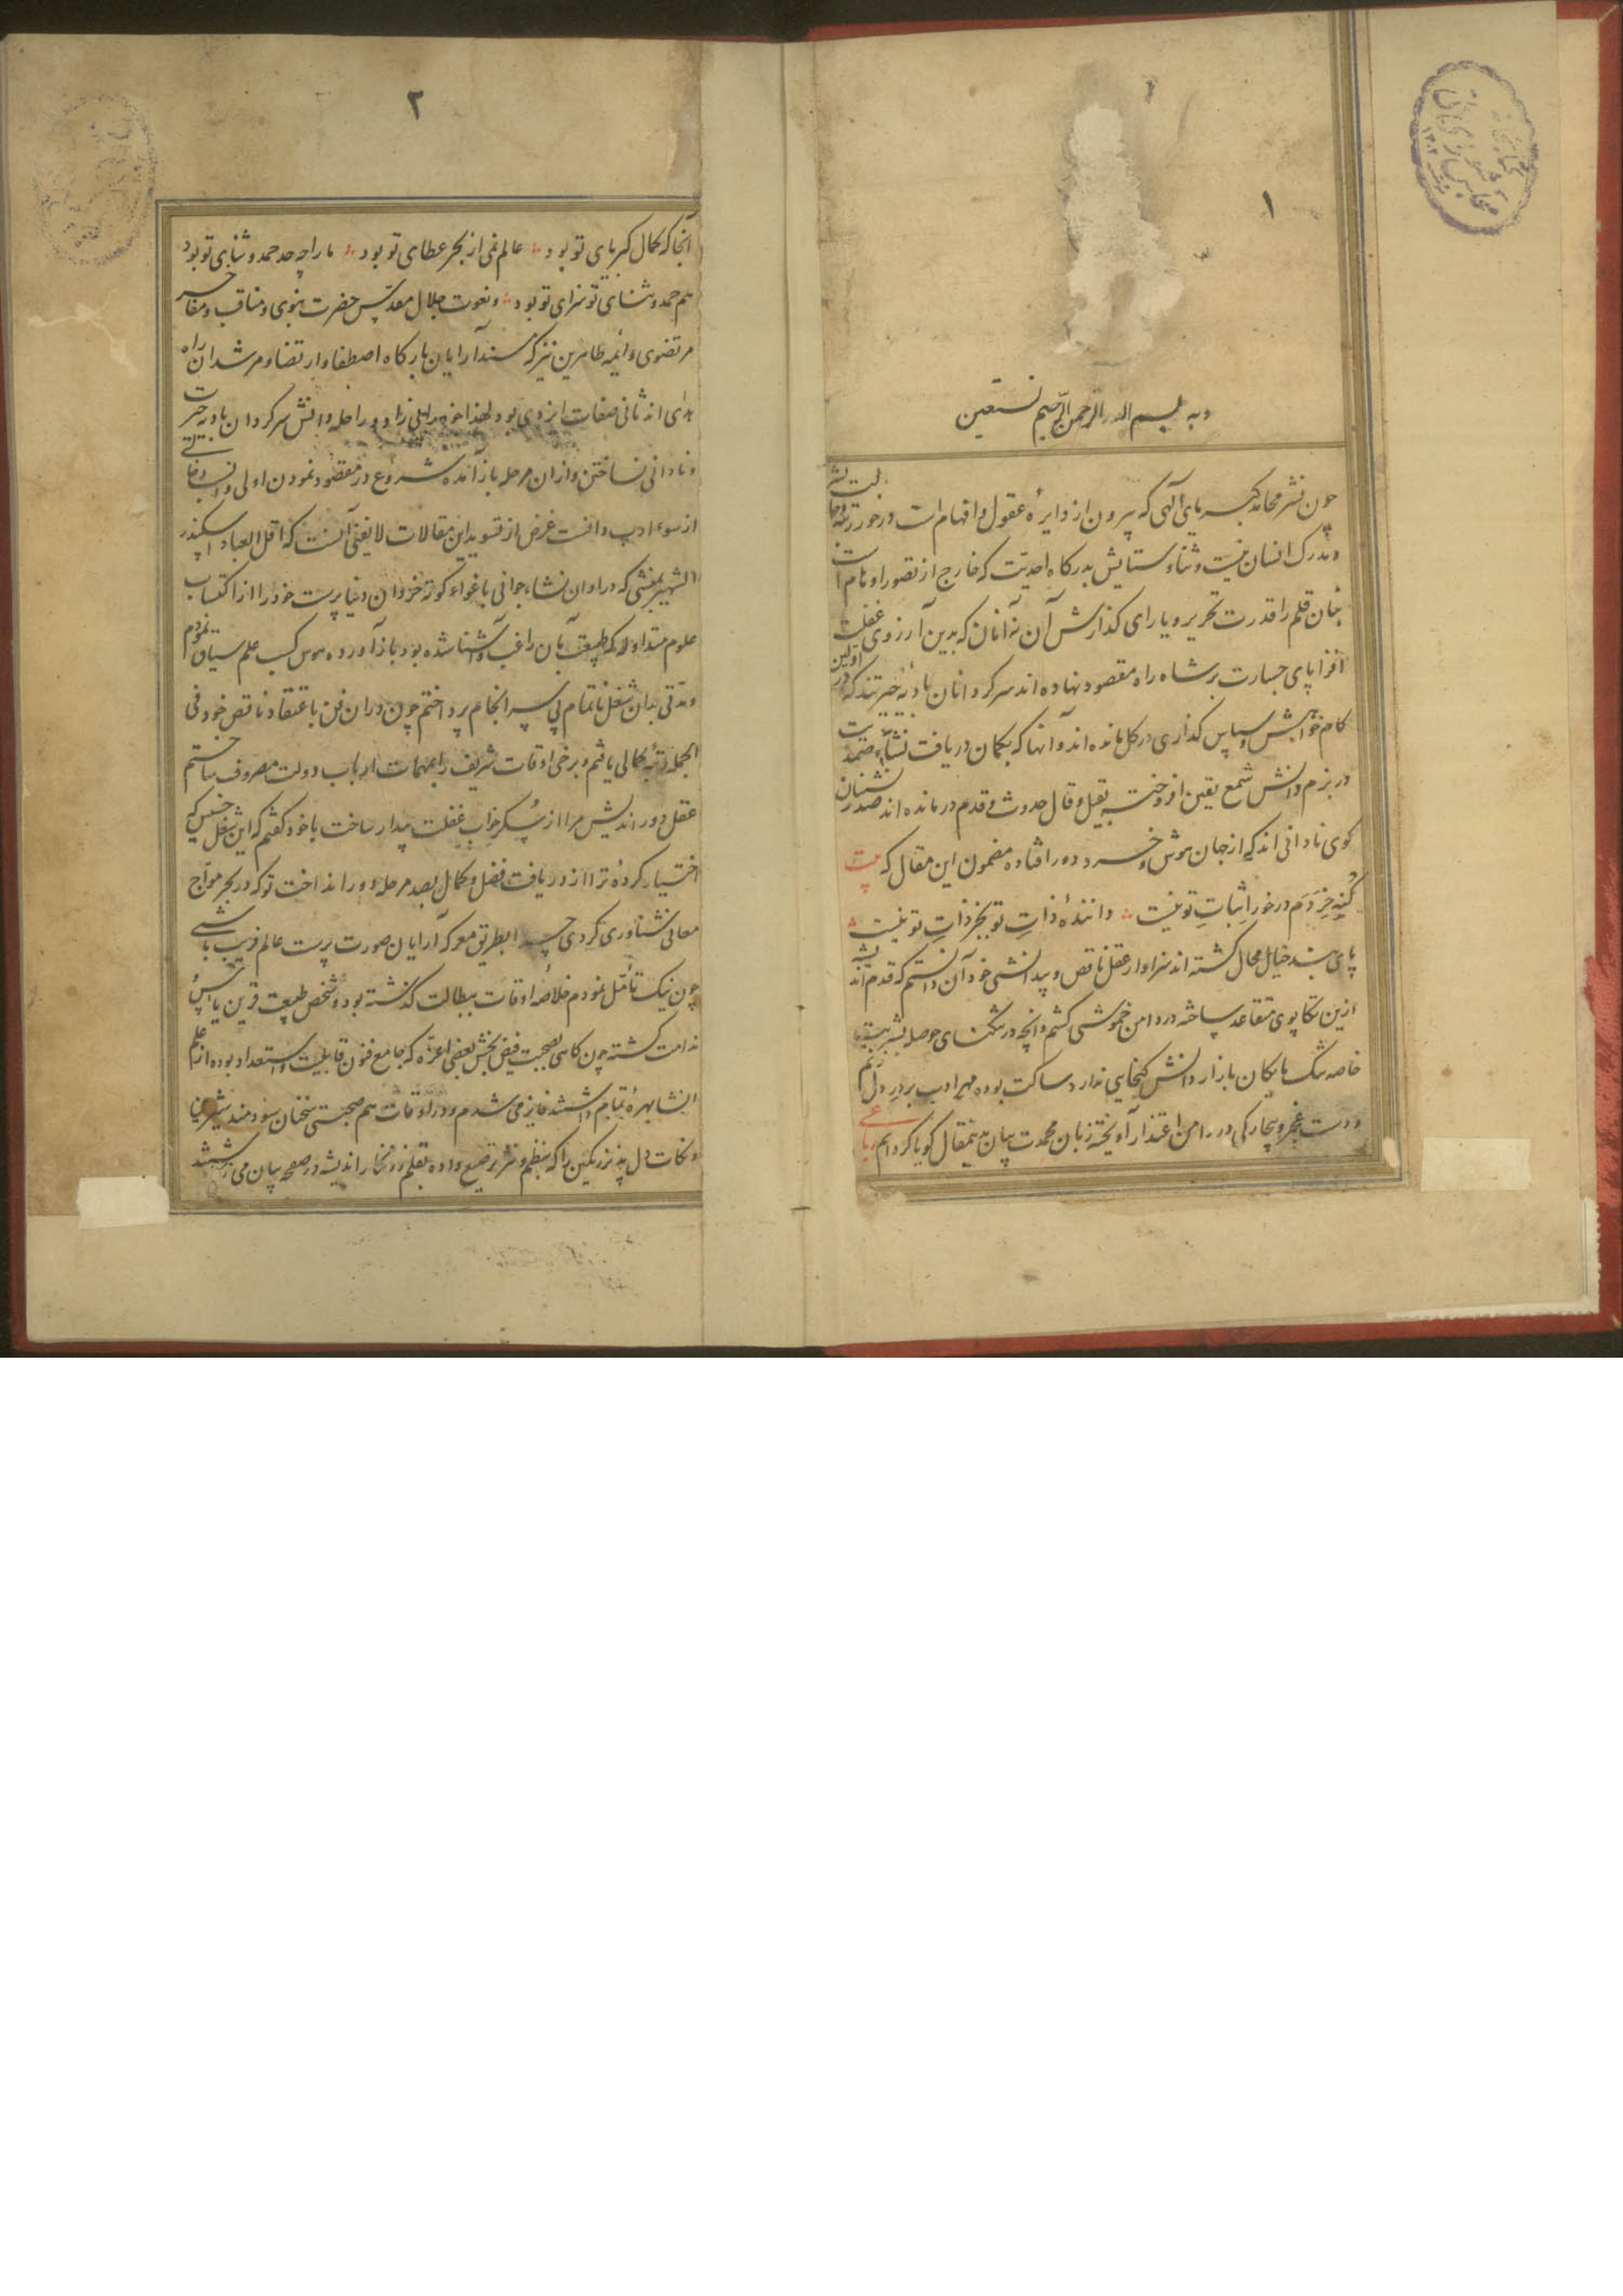 ۱
بسم الله الرحمن الرحیم وبه نستعین
چون نشر محامد کبریای آلهی که بیرون از دایرهٔ عقول و افهام است در خور رتبهٔ بشر
و مدرک انسان نیست و ثنا و ستایش بدرکاه احدیّت که خارج از تصور اوهام است
بنان قلم را قدرت تحریر و یارای کذارش آن نه آنان که بدین آرزوی غفلت
افزا پای جسارت بر شاه راه مقصود نهاده اند سرکردانان بادیهٔ حیرتند که در اولین
کام خواهش و سپاس کذاری در کل مانده اند و آنها که بکمان دریافت نشاءٔ صمدیت
در بزم دانش شمع یقین افروخته بقیل و قال حدوث و قدم درمانده اند صدرنشینان
کوی نادانی اند که از جهان هوش و خرد دور افتاده مضمون این مقال که بیت
کُنهِ خِرَدَم در خورِ اثباتِ تو نیست دانندهٔ ذاتِ تو بجز ذاتِ تو نیست
پای بند خیال محال کشته اند سزاوار عقل ناقص و بیدانشی خود آن دانستم که قدم اندیشه
ازین تکاپوی متقاعد ساخته در دامن خموشی کشم و آنچه در تنکنای حوصله بشریت
خاصه تنک مایکان بازار دانش کنجایی ندارد ساکت بوده مهر ادب بر درِ دل زنم
و دست عجز و بیچارکی در دامن اعتذار آویخته زبان محمدت بیان بدینمقال کویا کردانم رباعی
۲
آنجا که کمال کبریای تو بود عالم نمی از بحر عطای تو بود ما را چه حد حمد و ثنای تو بود
هم حمد و ثنای تو سزای تو بود و نعوت جلال مقدس حضرت نبوی و مناقب و مفاخر
مرتضوی و ائمه طاهرین نیز که مسند آرایان بارکاه اصطفا و ارتضا و مرشدان راه
هدای اند ثانی صفات ایزدی بود لهذا خود را بی زاد و راحله دانش سرکردان بادیه حیرت
و نادانی نساختن و از ان مرحله باز آمده شروع در مقصود نمودن اولی و انسب و خالی
از سوء ادب دانست غرض از تسوید این مقالات لا یعنی آنست که اقل العباد اسکندر
الشهیر بمنشی که در اوان نشاء جوانی باغواء کوته خردان دنیا پرست خود را از اکتساب
علوم متداوله که طبیعت بآن راغب و آشنا شده بود باز آورده هوس کسب علم سیاق نمودم
و مدّتی بدان شغل ناتمام بی سر انجام پرداختم چون در ان فن باعتقاد ناقص خود فی
الجمله رتبهٔ کمالی یافتم و برخی اوقات شریف را بمهمات ارباب دولت مصروف ساختم
عقل دور اندیش مرا از شکر خواب غفلت بیدار ساخت با خود کفتم که این شغل خسیس که
اختیار کردهٔ ترا از دریافت فضل و کمال بصد مرحله دور انداخت تو که در بحر موّاج
معانی شناوری کردی چرا بطریق معرکه آرایان صورت پرست عالم فریب باشی
چون نیک تأمل نمودم خلاصهٔ اوقات ببطالت کذشته بود و شخص طبیعت قرین یاس و
ندامت کشته چون کاهی بصحبت فیض بخش بعضی اعزّه که جامع فنون قابلیت و استعداد بوده از علم
انشا بهرهٔ تمام داشتند فایز می شدم و در اوقات هم صحبتی سخنان سودمند شیرین
و نکات دل پذیر رنکین را که بنظم و نثر ترصیع داده بقلم زرنکار اندیشه در صفحه بیان می